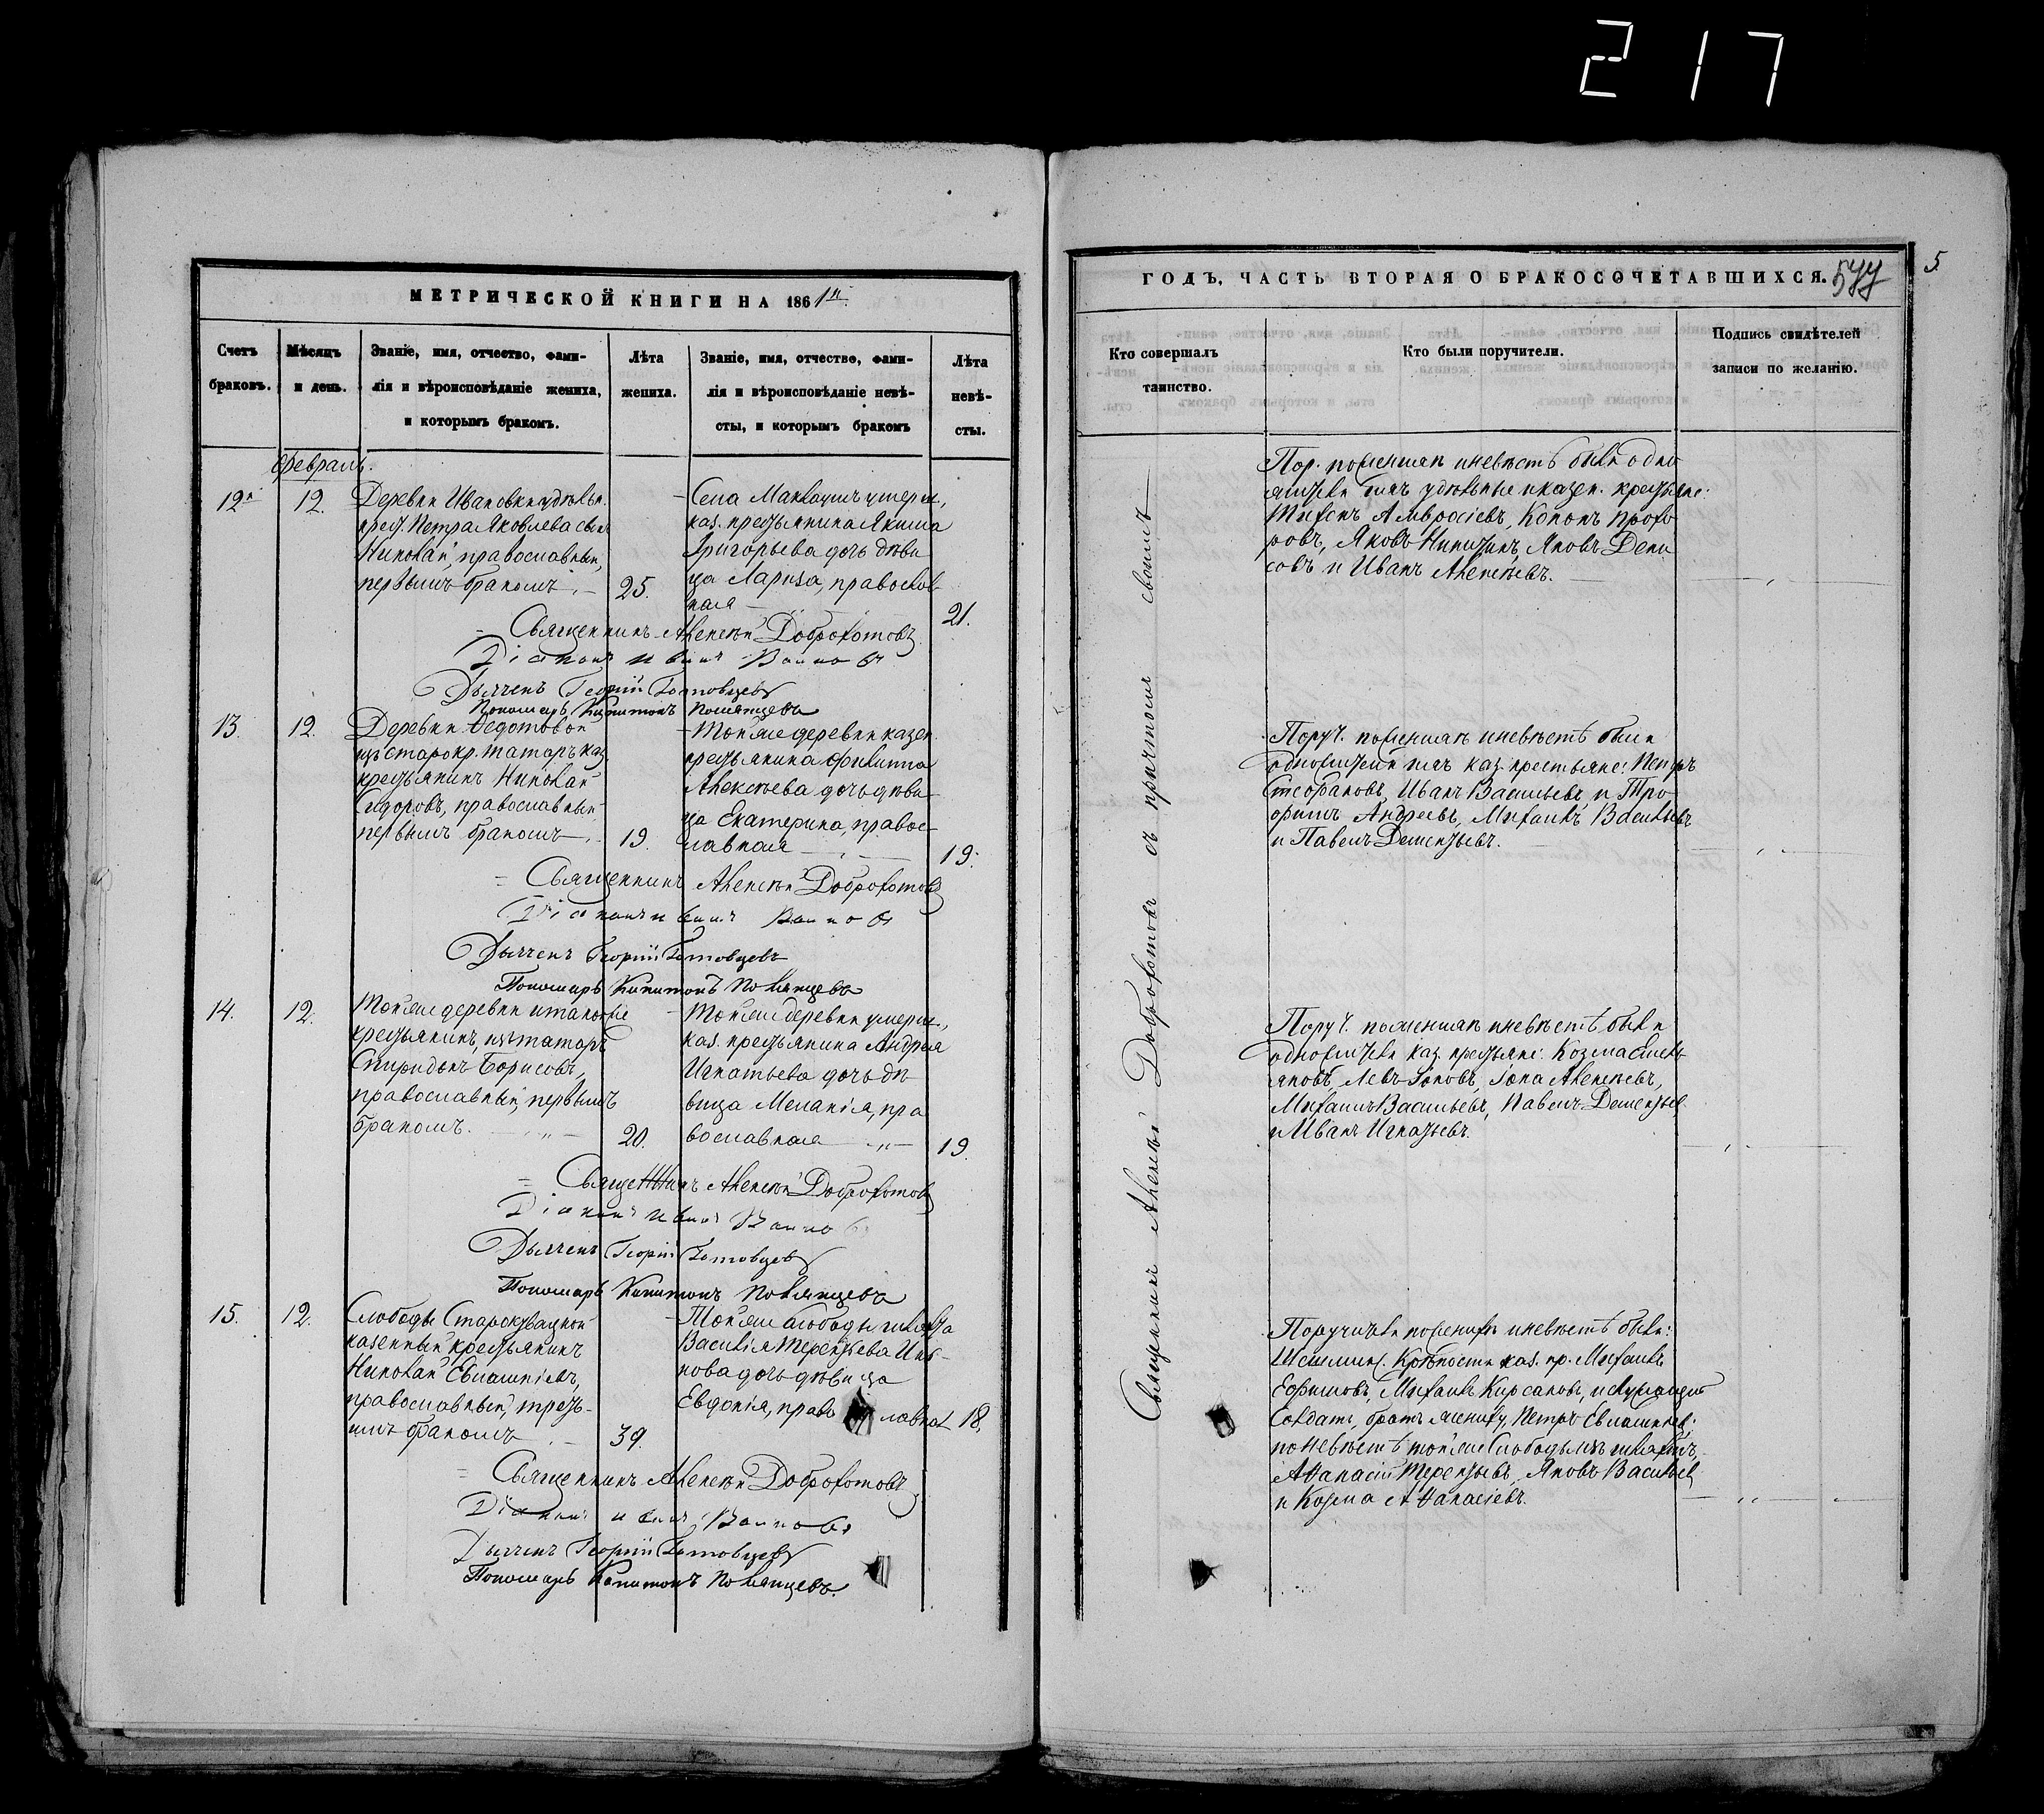 217
МЕТРИЧЕСКОЙ КНИГИ НА 1861й
Счетъ браковъ.
Мѣсяцъ и день.
Званіе, имя, отчество, фами-
лія и вѣроисповѣданіе жениха,
и которымъ бракомъ.
Лѣта
жениха.
Званіе, имя, отчество, фами-
лія и вѣроисповѣданіе невѣ-
сты, и которымъ бракомъ
Лѣта
невѣ-
сты.
Февраль.
12й
12.
Деревни Ивановки удѣльн.
крест. Петра Яковлева сынъ
Николай, православный,
первымъ бракомъ.
25.
Села Маклаушъ умерш,
каз. крестьянина Якима
Григорьева дочь дѣви
ца Лариса, православ
ная
21.
Священникъ Алексѣй Доброхотовъ
Діаконъ Иванъ
Дьячекъ Георгій Готовцевъ
Пономарь Капитонъ Полянцевъ
13.
12.
Деревни Ѳедотовой
изъ старокр. татаръ каз
крестьянинъ Николай
Сидоровъ, православный
первымъ бракомъ
19.
Той же деревни казен
крестьянина Филиппа
Алексѣева дочь дѣви
ца Екатерина, правос
лавная
19.
Священникъ Алексѣй Доброхотовъ
Діаконъ Иванъ
Дьячекъ Георгій Готовцевъ
Пономарь Капитонъ Полянцевъ
14.
12.
Той же деревни и таковые
крестьянинъ, изъ татаръ
Спиридонъ Борисовъ,
православный, первымъ
бракомъ.
20.
Той же деревни умерш,
каз. крестьянина Андрея
Игнатьева дочь дѣ
вица Меланія, пра
вославная
19.
Священникъ Алексѣй Доброхотовъ
Діаконъ Иванъ
Дьячекъ Георгій Готовцевъ
Пономарь Капитонъ Полянцевъ
15.
12.
Слободы
казенный крестьянинъ
Николай
православный, треть-
имъ бракомъ
39.
Той же слободы шляхта
Василія Терентьева
дочь дѣвица
Евдокія, право лавная
18.
Священникъ Алексѣй Доброхотовъ
Діаконъ Иванъ
Дьячекъ Георгій Готовцевъ
Пономарь Капитонъ Полянцевъ.
ГОДЪ, ЧАСТЬ ВТОРАЯ О БРАКОСОЧЕТАВШИХСЯ.
5
Кто совершалъ
таинство.
Кто были поручители.
Подпись свидѣтелей
записи по желанію.
Священникъ Алексѣй Доброхотовъ съ причтомъ своимъ
Пор. по женихѣ и невѣстѣ были одни
жители тѣхъ удѣльные и казен. крестьяне:
Тихонъ Амвросіевъ, Кононъ Прохо
ровъ, Яковъ Никитинъ, Яковъ Дени
совъ и Иванъ Алексѣевъ.
Поруч. по женихѣ и невѣстѣ были
одножители тѣхъ каз. крестьяне: Петръ
Стефановъ, Иванъ Васильевъ и Тро
фимъ Андреевъ, Михаилъ Васильевъ
и Павелъ Дементьевъ.
Поруч. по женихѣ и невѣстѣ были
одножители каз. крестьяне: Козма Емель
яновъ, Левъ Іоновъ, Іона Алексѣевъ,
Михаилъ Васильевъ, Павелъ Дементьев
и Иванъ Игнатьевъ.
Поручители по женихѣ и невѣстѣ были:
Шешмин. Крѣпости каз. кр. Михаилъ
Ефимовъ, Михаилъ Кирсановъ, и служащій
Солдатъ, братъ жениху, Петръ
по невѣстѣ той же Слободы изъ шляхтъ,
Аѳанасій Терентьевъ, Яковъ Васильев
и Козма Аѳанасіевъ.